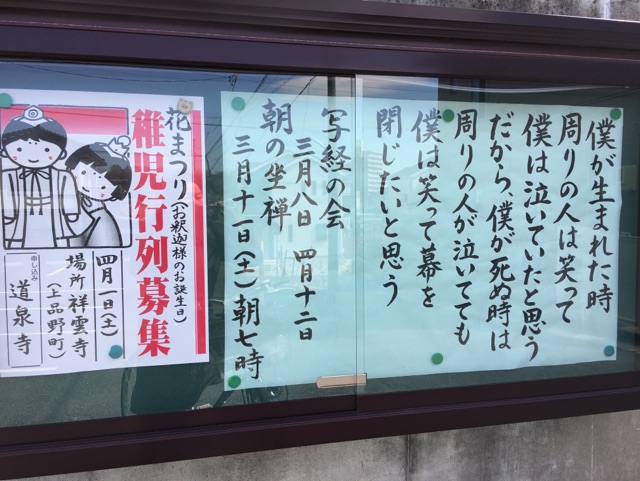 僕が生まれた時
周りの人は笑って
僕は泣いていたと思う
だから、僕が死ぬ時は
周りの人が泣いてても
僕は笑って幕を
閉じたいと思う
写経の会
三月八日 四月十二日
朝の坐禅
三月十一日(土)朝七時
花まつり(お釈迦様のお誕生日)
稚児行列募集
四月一日(土)
場所 祥雲寺
(上品野町)
申し込み 道泉寺